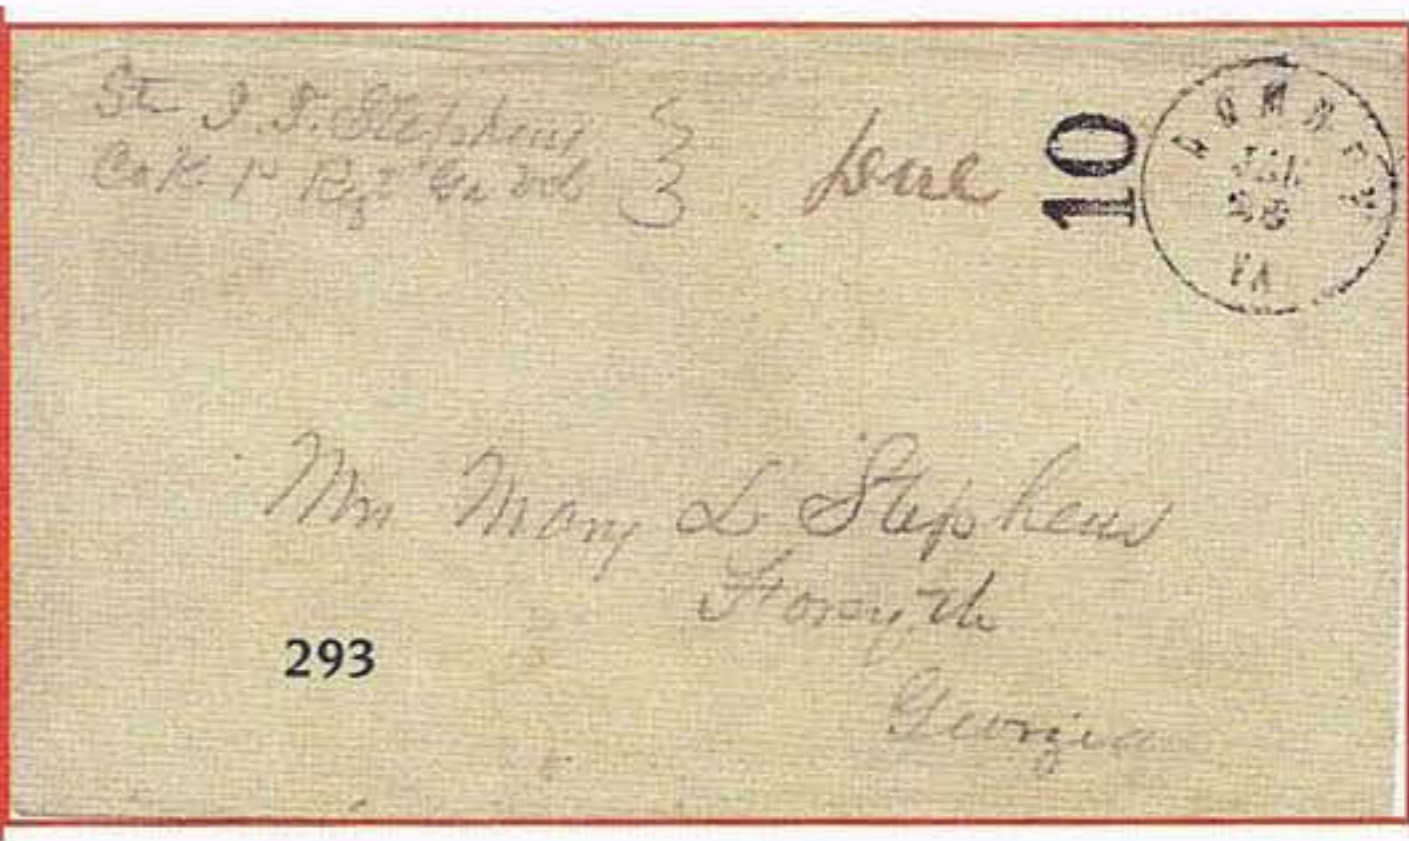 J. T. Stephens
Co K 1st Reg Ga Vol
Due
10
ROMNEY
JAN
26
VA
Mrs Mary L Stephens
Forsyth
Georgia
293